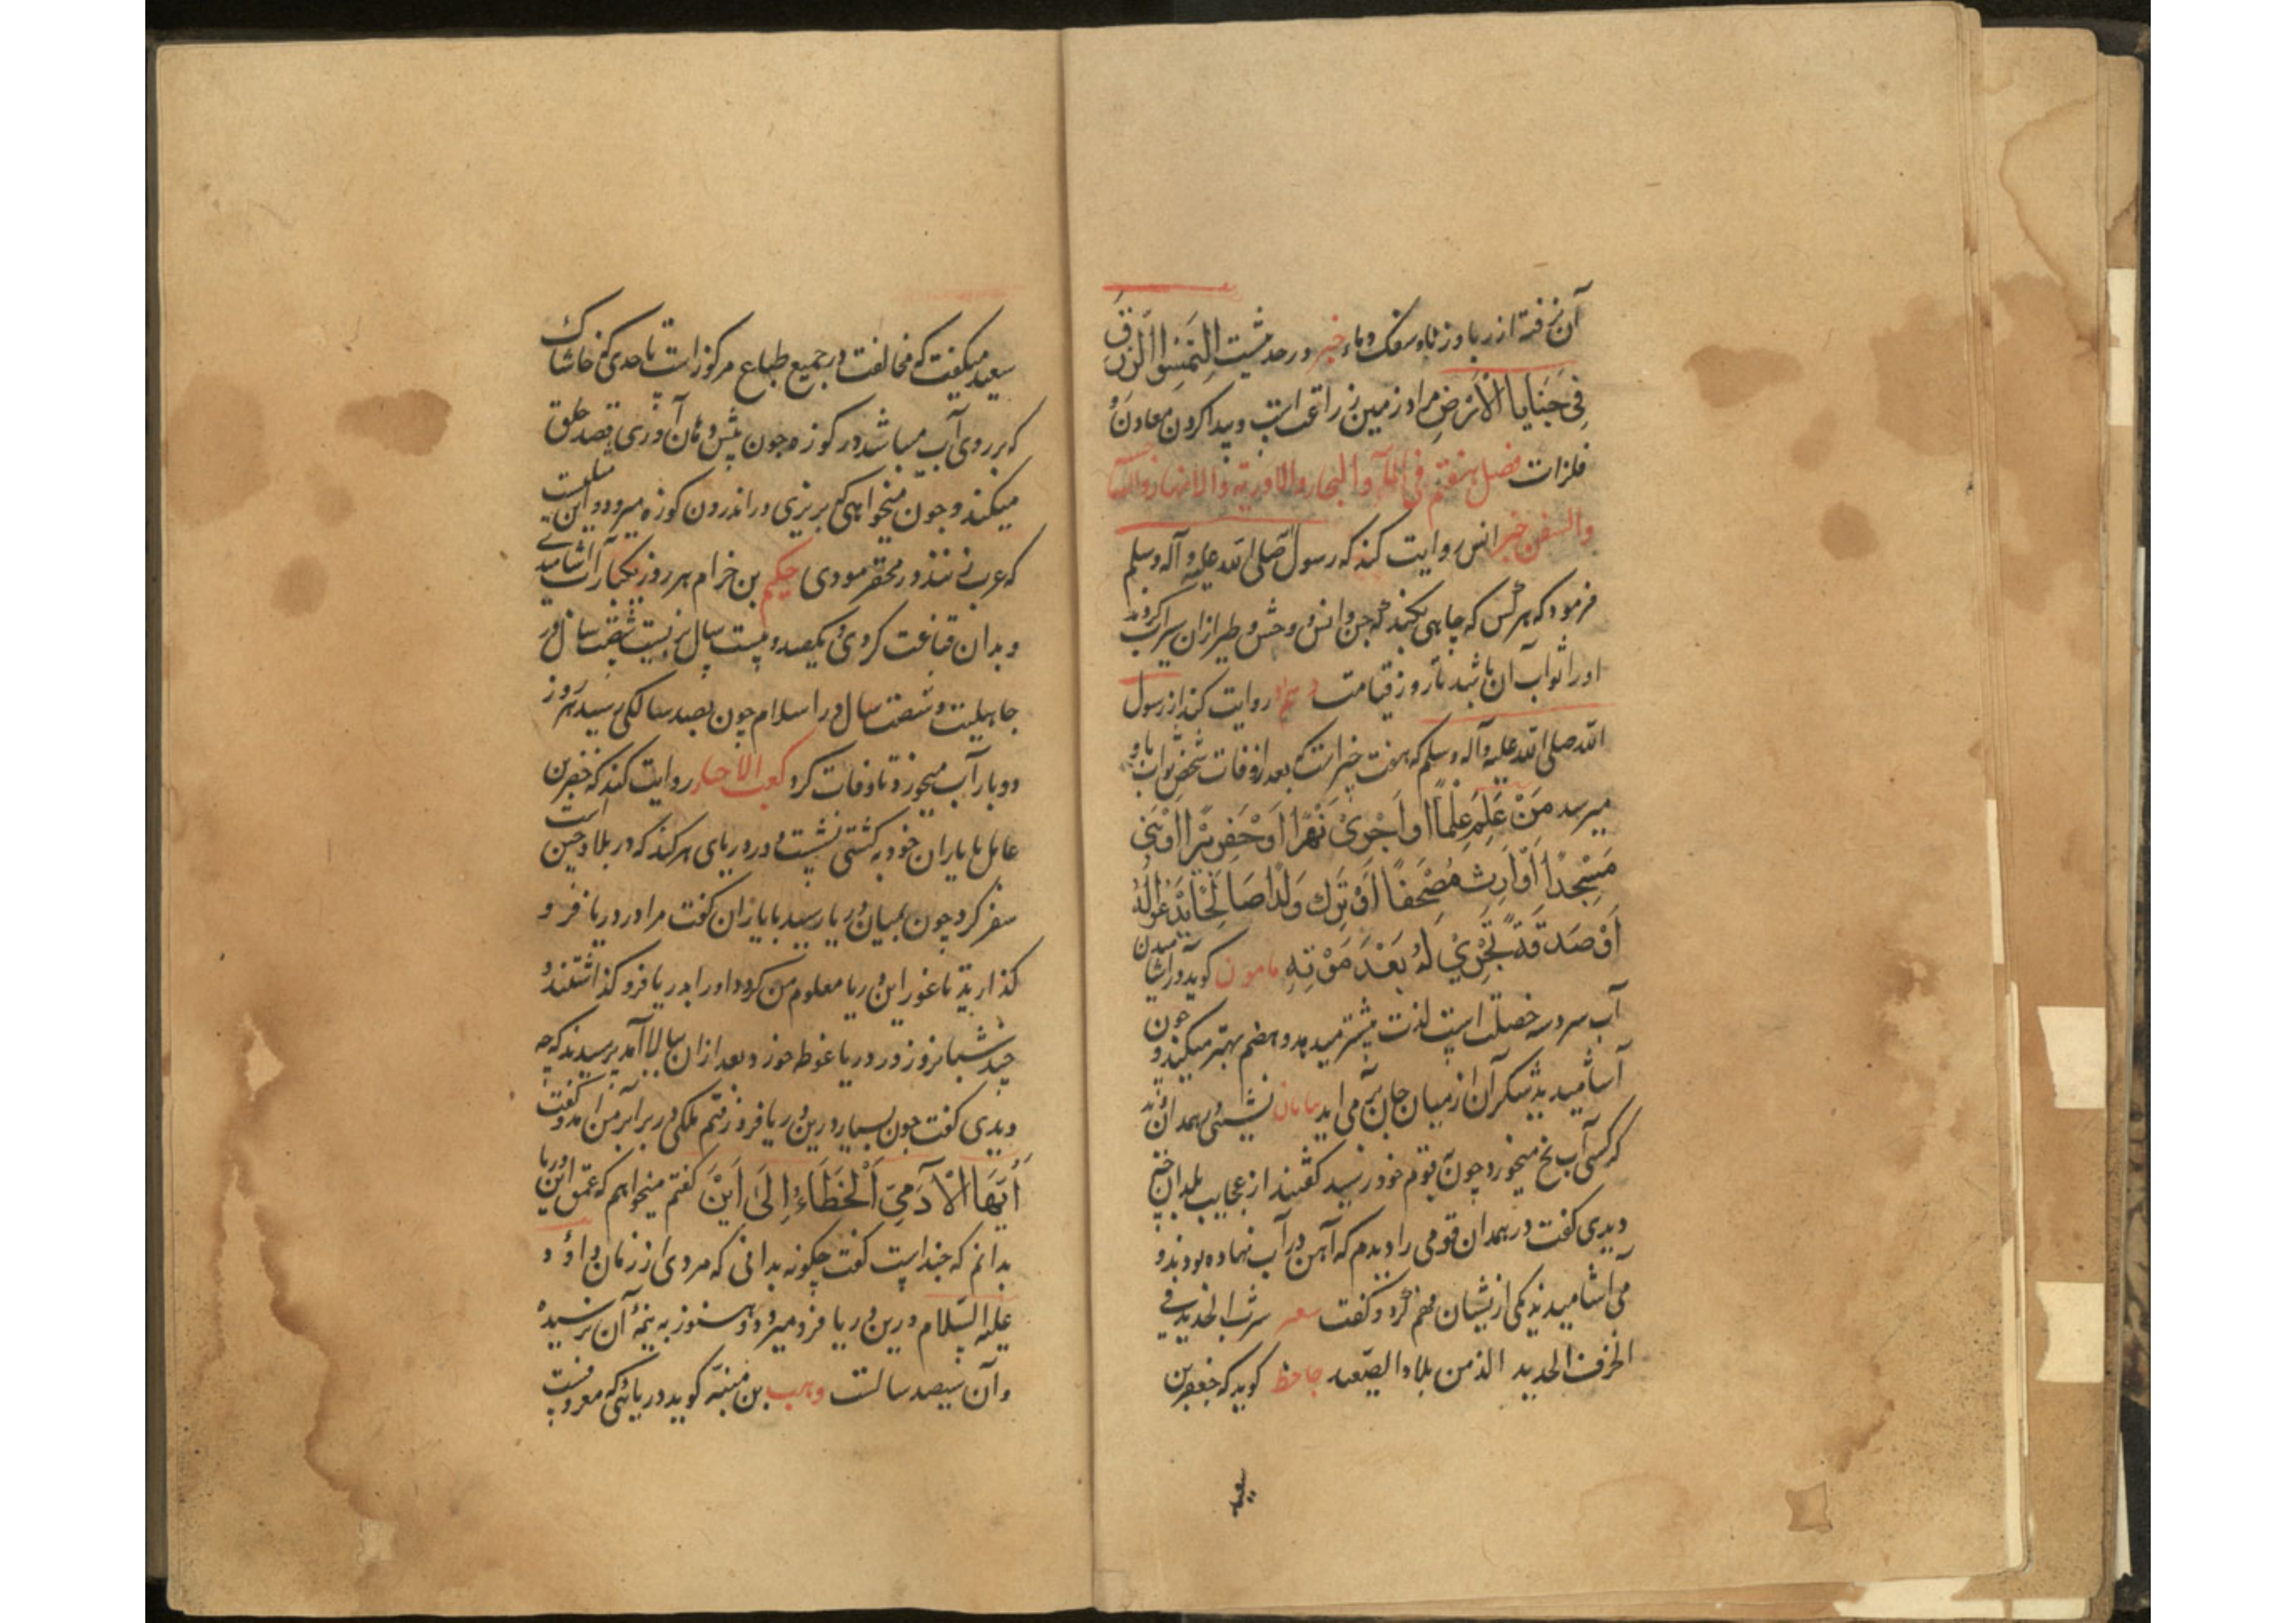 آن گرفته از ربا و زنا و سفک دماء خبر در حدیثست اِلتَمِسُوا الرِّزقَ
فِی خَبَایا الاَرضِ مراد زمین زراعت است و پیدا کردن معادن و
فلزات فصل هفتم فی الماء والبحار والاودیة والانهار والآبار
والسفن خبر انس روایت کند که رسول صلی الله علیه وآله وسلم
فرمود که هر کس که چاهی بکند که جن و انس و وحش و طیر از آن سیراب گردند
او را ثواب آن باشد تا روز قیامت و هم او روایت کند از رسول
الله صلی الله علیه وآله وسلم که هفت چیز است که بعد از وفات شخص ثواب باو
میرسد مَنْ عَلِمَ عِلْمًا اَو اَجْرَیْ نَهْرًا اَوْ حَفَرَ بِئرًا اَوْ بَنی
مَسْجِدًا اَوْ اَرِثَ مُصْحَفًا اَوْ تَرَكَ وَلَدًا صَالِحًا یَدْعُوا لَهُ
اَوْ صَدَقَةً تَجْرِیْ لَهُ بَعْدَ مَوْتِهِ مامون گوید در آشامیدن
آب سرد سه خصلت است لذت بیشتر میدهد و هضم بهتر میکند و چون
آشامیدید شکر آن از میان جان بر می آید نشینی همدان
که کسی آب یخ میخورد چون بقوم خود رسید گفتند از عجایب بلدان چه
دیدی گفت در همدان قومی را دیدم که آهن در آب نهاده بودند و
می آشامیدند یکی از یشان فهم کرد و گفت شعر شرب الحدید فی
الخزف الحدید الذ من بلاد الصعید جاحظ گوید که جعفر بن
سعید
سعید میگفت که مخالفت در جمیع طباع مرکوز است تا حدی که خاشاک
که بر روی آب میباشد در کوزه چون پیش دهان آوری قصد حلق
میکند و چون میخواهی که بریزی در اندرون کوزه میرود و این مثلیست
که عرب زنند در محقر موذی حکیم بن حزام هر روز یکبار آب آشامیدی
و بدان قناعت کردی و یکصد و بیست سال بزیست شصت سال در
جاهلیت و شصت سال در اسلام چون بصد سالگی رسید هر روز
دو بار آب میخورد تا وفات کرد کعب الاحبار روایت کند که خضر بن
عامل با یاران خود به کشتی نشست و در دریای هرکند که در بلاد چین است
سفر کرد چون بمیان دریا رسید با یاران گفت مرا در دریا فرو
گذارید تا غور این دریا معلوم من گردد او را بدریا فرو گذاشتند و
چند شبانروز در دریا غوطه خورد و بعد از آن ببالا آمد پرسیدند که چه
دیدی گفت چون بسیار درین دریا فرو رفتم ملکی در برابر من آمد و گفت
اَیُّهَا الْآدَمِیَّ اَلْخَطَاءُ اِلَیٰ اَیْنَ گفتم میخواهم که عمق این دریا
بدانم که چند است گفت چگونه بدانی که مردی از زمان داود
علیه السّلام درین دریا فرو میرود و هنوز به نیمهٔ آن نرسیده
و آن سیصد سالست وهب بن منبّه گوید دریائی که معروفست